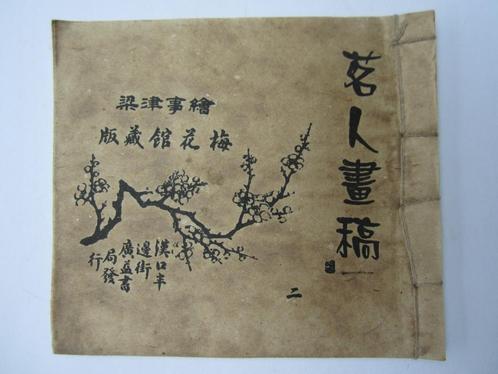 茗人畫稿
二
繪事津梁
梅花館藏版
漢口半
邊街
廣益書
局發
行